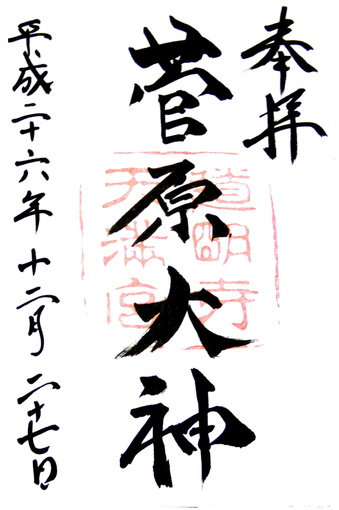 奉拝
菅原大神
道明寺
天満宮
平成二十六年十二月二十七日